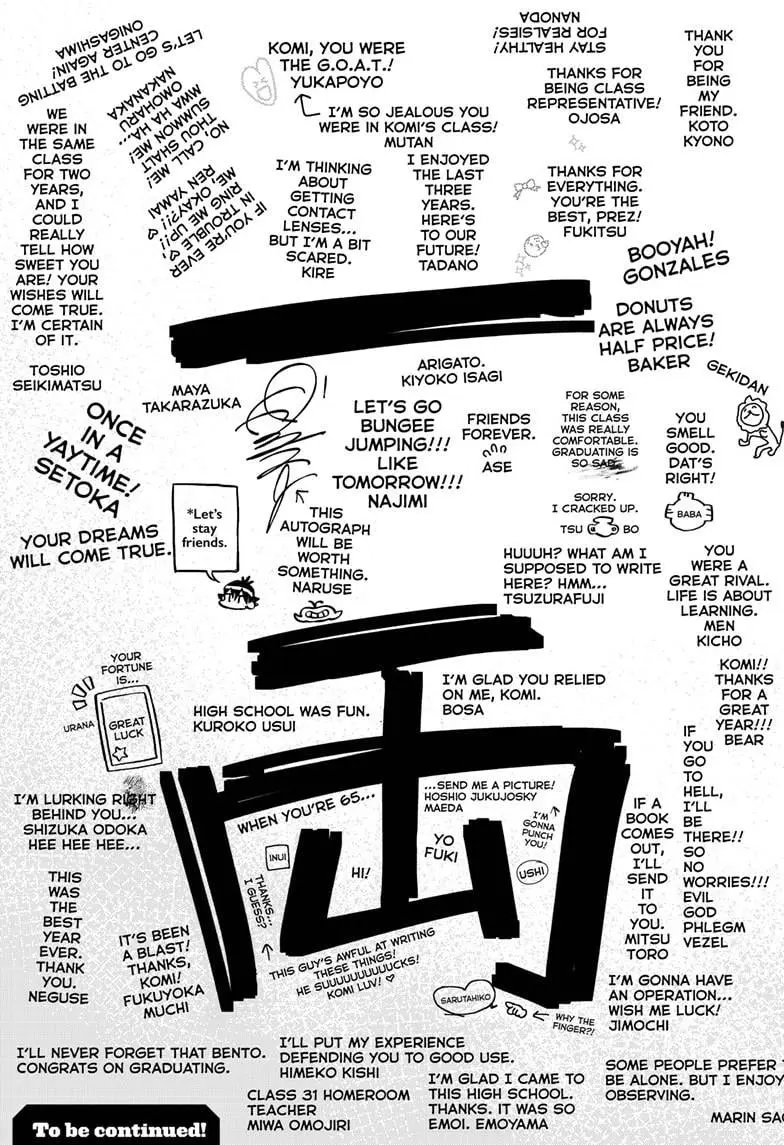 LET'S GO TO THE BATTING
CENTER AGAIN!
ONIGASHIMA
KOMI, YOU WERE
THE G.O.A.T.!
YUKAPOYO
STAY HEALTHY!
FOR REALSIES!
NANODA
THANK
YOU
FOR
BEING
MY
FRIEND.
KOTO
KYONO
NO, CALL ME!
THOU SHALT
SUMMON ME!
MWA HA HA...
OMOHARU
NAKANAKA
I'M SO JEALOUS YOU
WERE IN KOMI'S CLASS!
MUTAN
THANKS FOR
BEING CLASS
REPRESENTATIVE!
OJOSA
WE
WERE IN
THE SAME
CLASS
FOR TWO
YEARS,
AND I
COULD
REALLY
TELL HOW
SWEET YOU
ARE! YOUR
WISHES WILL
COME TRUE.
I'M CERTAIN
OF IT.
TOSHIO
SEIKIMATSU
IF YOU'RE EVER
IN TROUBLE,
RING ME UP!!
ME, OKAY?!
REN YAMAI
I'M THINKING
ABOUT
GETTING
CONTACT
LENSES...
BUT I'M A BIT
SCARED.
KIRE
I ENJOYED
THE LAST
THREE
YEARS.
HERE'S
TO OUR
FUTURE!
TADANO
THANKS FOR
EVERYTHING.
YOU'RE THE
BEST, PREZ!
FUKITSU
BOOYAH!
GONZALES
DONUTS
ARE ALWAYS
HALF PRICE!
BAKER
MAYA
TAKARAZUKA
ARIGATO.
KIYOKO ISAGI
GEKIDAN
ONCE
IN A
YAYTIME!
SETOKA
LET'S GO
BUNGEE
JUMPING!!!
LIKE
TOMORROW!!!
NAJIMI
FRIENDS
FOREVER.
ASE
FOR SOME
REASON,
THIS CLASS
WAS REALLY
COMFORTABLE.
GRADUATING IS
SO SAD.
SORRY.
I CRACKED UP.
TSU BO
YOU
SMELL
GOOD.
DAT'S
RIGHT!
BABA
YOUR DREAMS
WILL COME TRUE.
*Let's
stay
friends.
THIS
AUTOGRAPH
WILL BE
WORTH
SOMETHING.
NARUSE
HUUUH? WHAT AM I
SUPPOSED TO WRITE
HERE? HMM...
TSUZURAFUJI
YOU
WERE A
GREAT RIVAL.
LIFE IS ABOUT
LEARNING.
MEN
KICHO
YOUR
FORTUNE
IS...
URANA
GREAT
LUCK
HIGH SCHOOL WAS FUN.
KUROKO USUI
I'M GLAD YOU RELIED
ON ME, KOMI.
BOSA
KOMI!!
THANKS
FOR A
GREAT
YEAR!!!
BEAR
IF
YOU
GO
TO
HELL,
I'LL
BE
THERE!!
SO
NO
WORRIES!!!
EVIL
GOD
PHLEGM
VEZEL
I'M LURKING RIGHT
BEHIND YOU...
SHIZUKA ODOKA
HEE HEE HEE...
WHEN YOU'RE 65...
...SEND ME A PICTURE!
HOSHIO JUKUJOSKY
MAEDA
I'M
GONNA
PUNCH
YOU!
USHI
IF A
BOOK
COMES
OUT,
I'LL
SEND
IT
TO
YOU.
MITSU
TORO
INUI
THANKS...
I GUESS?
HI!
YO
FUKI
THIS
WAS
THE
BEST
YEAR
EVER.
THANK
YOU.
NEGUSE
IT'S BEEN
A BLAST!
THANKS,
KOMI!
FUKUYOKA
MUCHI
THIS GUY'S AWFUL AT WRITING
THESE THINGS!
HE SUUUUUUUUUCKS!
KOMI LUV!
SARUTAHIKO
WHY THE
FINGER?!
I'M GONNA HAVE
AN OPERATION...
WISH ME LUCK!
JIMOCHI
I'LL NEVER FORGET THAT BENTO.
CONGRATS ON GRADUATING.
I'LL PUT MY EXPERIENCE
DEFENDING YOU TO GOOD USE.
HIMEKO KISHI
CLASS 31 HOMEROOM
TEACHER
MIWA OMOJIRI
I'M GLAD I CAME TO
THIS HIGH SCHOOL.
THANKS. IT WAS SO
EMOI. EMOYAMA
SOME PEOPLE PREFER
BE ALONE. BUT I ENJOY
OBSERVING.
MARIN
To be continued!